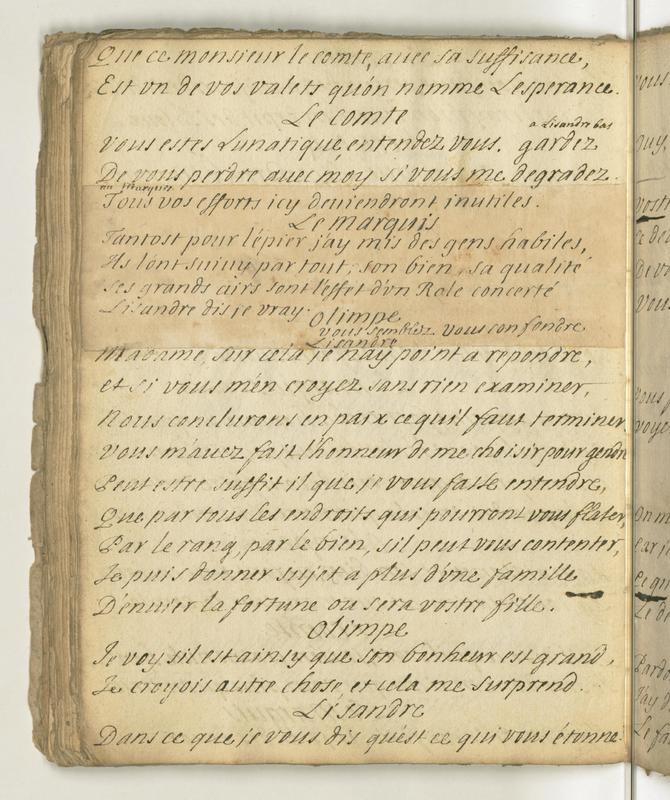 Que ce monsieur le comte, auec sa suffisance,
Est vn de vos valets qu'on nomme Lesperance.
Le comte
a Lisandre bas
vous estes Lunatique, entendez vous. gardez
De vous perdre auec moy si vous me degradez.
au marquis
Tous vos efforts icy deuiendront inutiles.
Le marquis
Tantost pour l'épier j'ay mis des gens habiles,
Ils l'ont suiuy par tout, son bien, sa qualité
Ses grands airs sont l'effet d'vn Role concerté
Lisandre dis je vray.
Olimpe
vous semblez vous confondre
Lisandre
Madame, sur cela je n'ay point a repondre,
et si vous m'en croyez sans rien examiner,
Nous conclurons en paix ce qu'il faut terminer
vous m'auez fait l'honneur de me choisir pour gendre
Peut estre suffit il que je vous fasse entendre,
Que par tous les endroits qui pourront vous flater,
Par le rang, par le bien, s'il peut vous contenter,
Je puis donner sujet a plus d'vne famille
D'enuier la fortune ou sera vostre fille.
Olimpe
Je voy s'il est ainsy que son bonheur est grand,
Je croyois autre chose, et cela me surprend.
Lisandre
Dans ce que je vous dis qu'est ce qui vous étonne